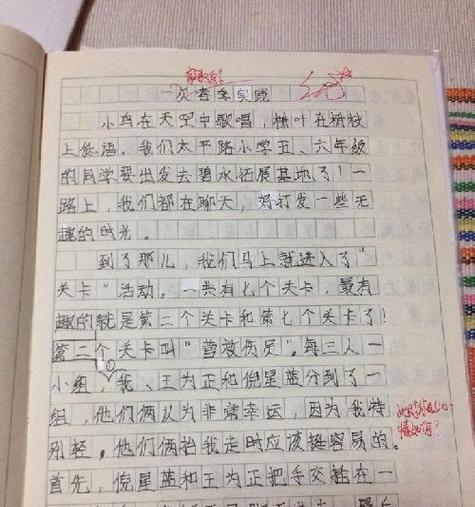 一次春季实践
小鸟在天空中歌唱，树叶在树枝
上低语。我们太平路小学五、六年级
的同学要出发去碧水拓展基地了！一
路上，我们都在聊天，好打发一些无
趣的时光。
到了那儿，我们马上就进入了“
关卡”活动。一共有七个关卡，最有
趣的就是第二个关卡和第七个关卡了！
第二个关卡叫“营救伤员”。每三人一
小组，我、王为正和倪星蓝分到了一
组，他们俩认为非常幸运，因为我特
别轻，他们俩抬我走时应该挺容易的。
首先，倪星蓝和王为正把手交插在一